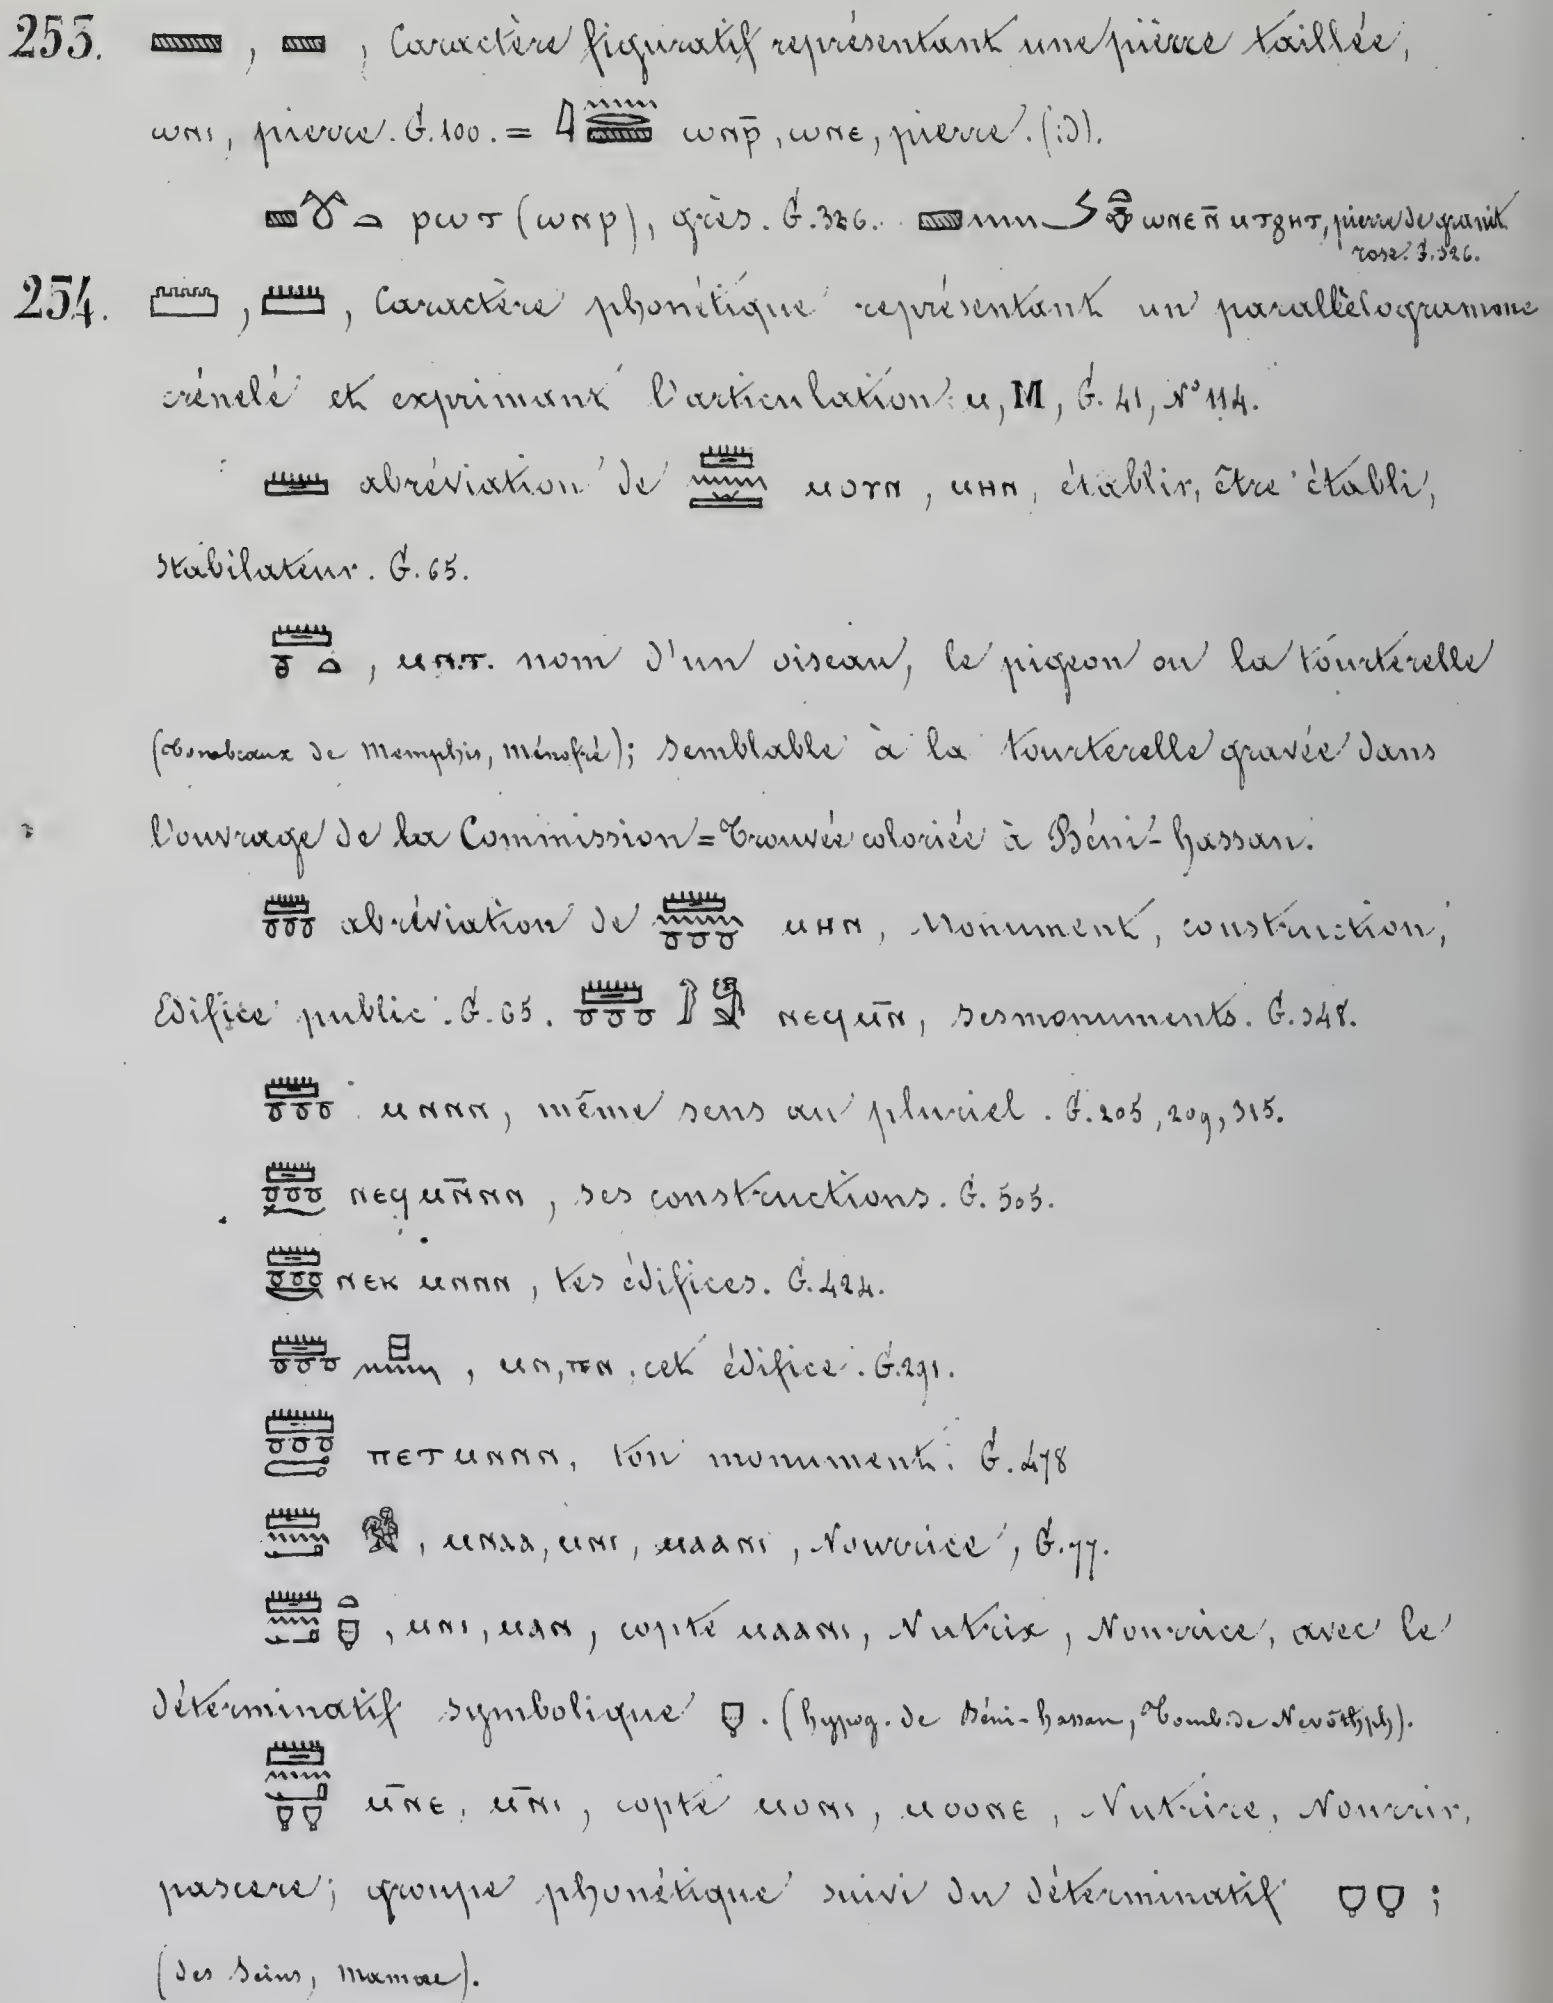 253. , , Caractère figuratif représentant une pierre taillée,
ⲱⲛⲓ, pierre. G. 100. = ⲱⲛⲣ̄, ⲱⲛⲉ, pierre. (id).
ⲣⲱⲧ (ⲱⲛⲣ), grès. G. 326. ⲱⲛⲉ ⲛ̄ ⲙⲧϩⲏⲧ, pierre de granit
rose. G. 326.
254. , , Caractère phonétique représentant un parallèlogramme
crénelé et exprimant l'articulation ⲙ, M, G. 41, N° 114.
abréviation de ⲙⲟⲩⲛ, ⲙⲏⲛ, établir, être établi,
stabilateur. G. 65.
, ⲙⲛ.ⲧ. nom d'un oiseau, le pigeon ou la tourterelle
(Tombeaux de Memphis, Ménofré); semblable à la tourterelle gravée dans
l'ouvrage de la Commission = Trouvée coloriée à Béni-hassan.
abréviation de ⲙⲏⲛ, Monument, construction,
Edifice public. G. 65. ⲛⲉϥⲙ̄ⲛ, ses monuments. G. 348.
ⲙⲛⲛⲛ, même sens au pluriel. G. 205, 209, 315.
ⲛⲉϥ ⲙⲛ̄ⲛⲛ, ses constructions. G. 505.
ⲛⲉⲕ ⲙⲛⲛⲛ, tes édifices. G. 424.
, ⲙⲛ, ⲡⲛ, cet édifice. G. 291.
ⲡⲉⲧ ⲙⲛⲛⲛ, ton monument. G. 478
, ⲙⲛⲁⲁ, ⲙⲛⲓ, ⲙⲁⲁⲛⲓ, Nourrice, G. 77.
, ⲙⲛⲓ, ⲙⲁⲛ, copte ⲙⲁⲁⲛⲓ, Nutrix, Nourrice, avec le
déterminatif symbolique . (hypog. de Béni-hassan, Tomb. de Nevôthph).
ⲙ̄ⲛⲉ, ⲙ̄ⲛⲓ, copte ⲙⲟⲛⲓ, ⲙⲟⲟⲛⲉ, Nutrire, Nourrir,
pascere; groupe phonétique suivi du déterminatif ;
(des Seins, Mamae).